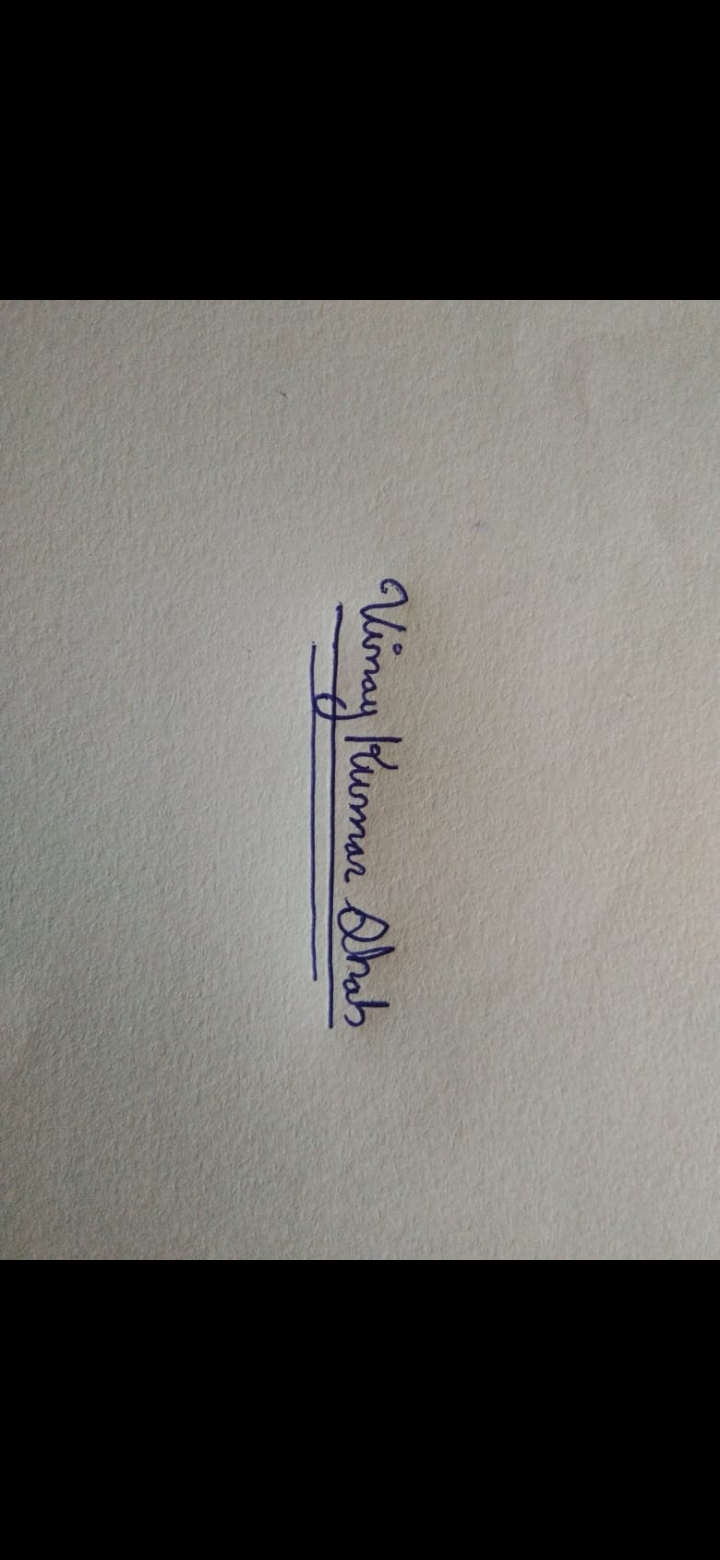 Vinay Kumar Shah